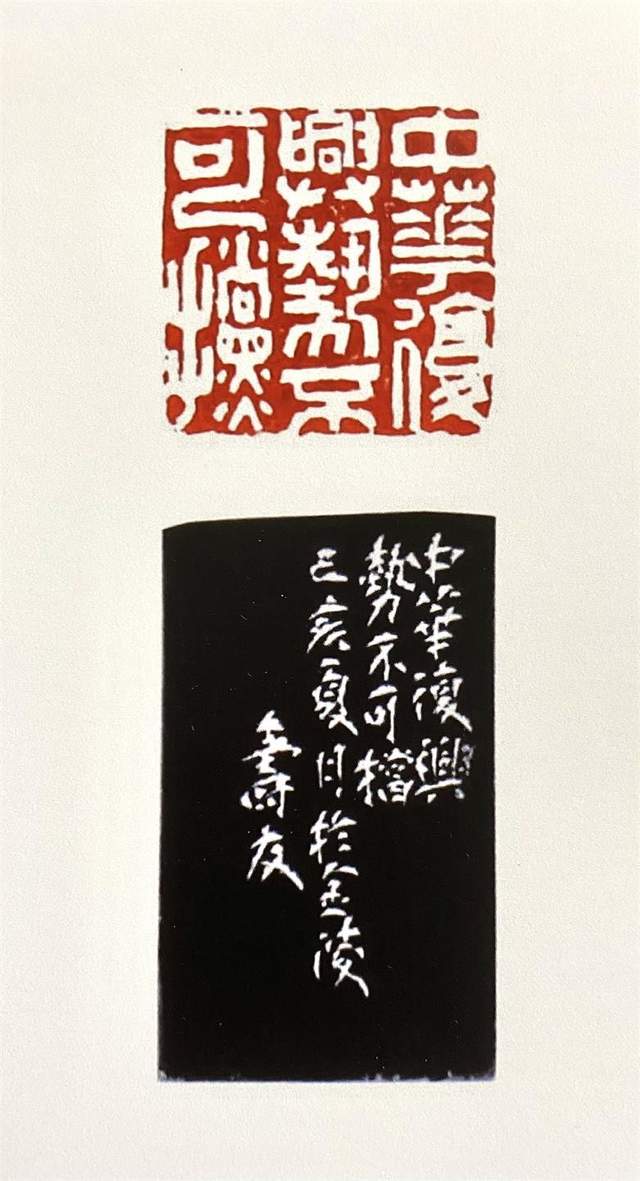 中華復
興勢不
可攩
中華復興
勢不可擋
己亥夏月於金陵
壽友